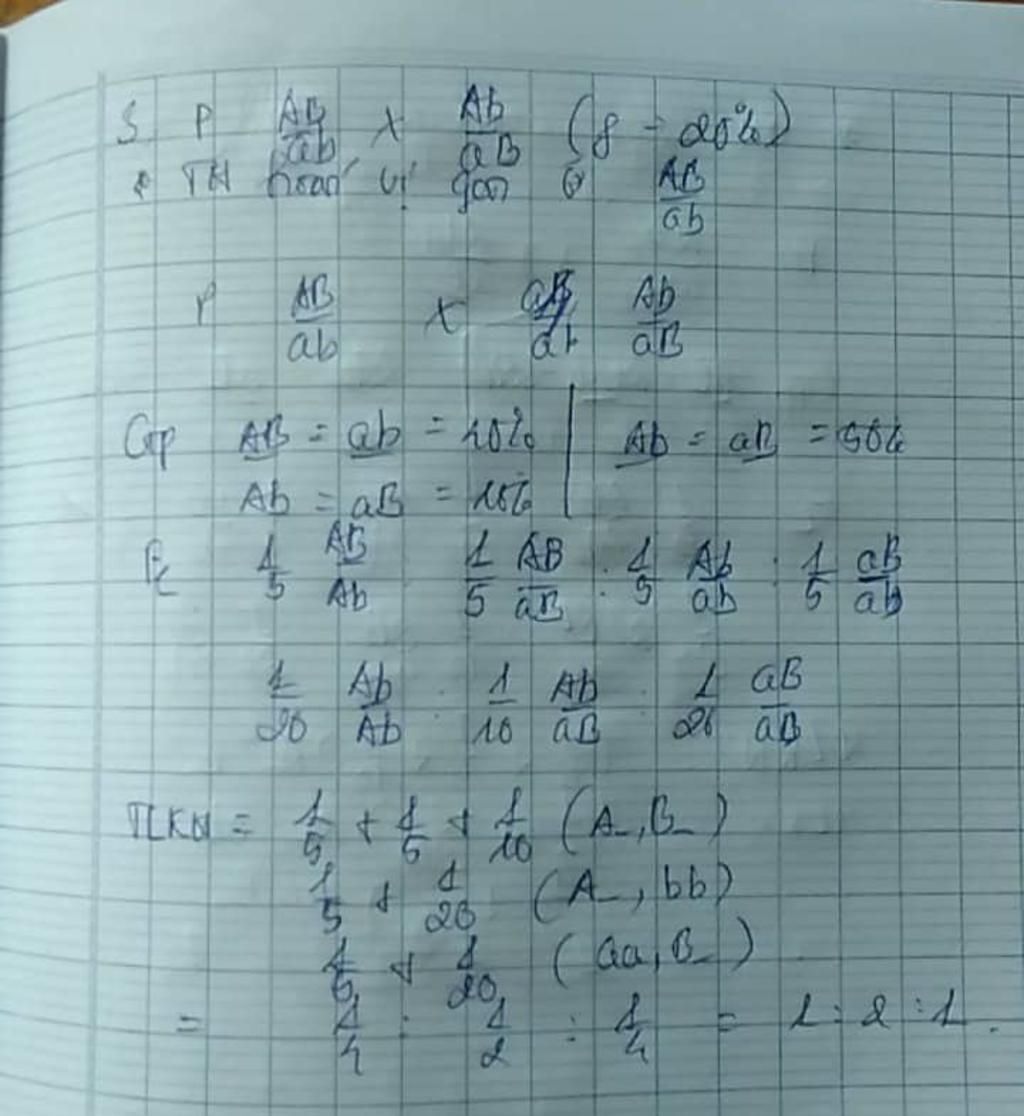 S. P AB/ab X Ab/aB (f = 20%)
* TH hoán vị gen ở AB/ab
P AB/ab X Ab/aB
Gp AB = ab = 40% | Ab = aB = 50%
Ab = aB = 10%
F1 1/5 AB/Ab : 1/5 AB/aB : 1/5 Ab/ab : 1/5 aB/ab
1/20 Ab/Ab : 1/10 Ab/aB : 1/20 aB/aB
TLKH = 1/5 + 1/5 + 1/10 (A_,B_)
1/5 + 1/20 (A_, bb)
1/5 + 1/20 (aa, B_)
= 1/4 : 1/2 : 1/4 = 1 : 2 : 1.